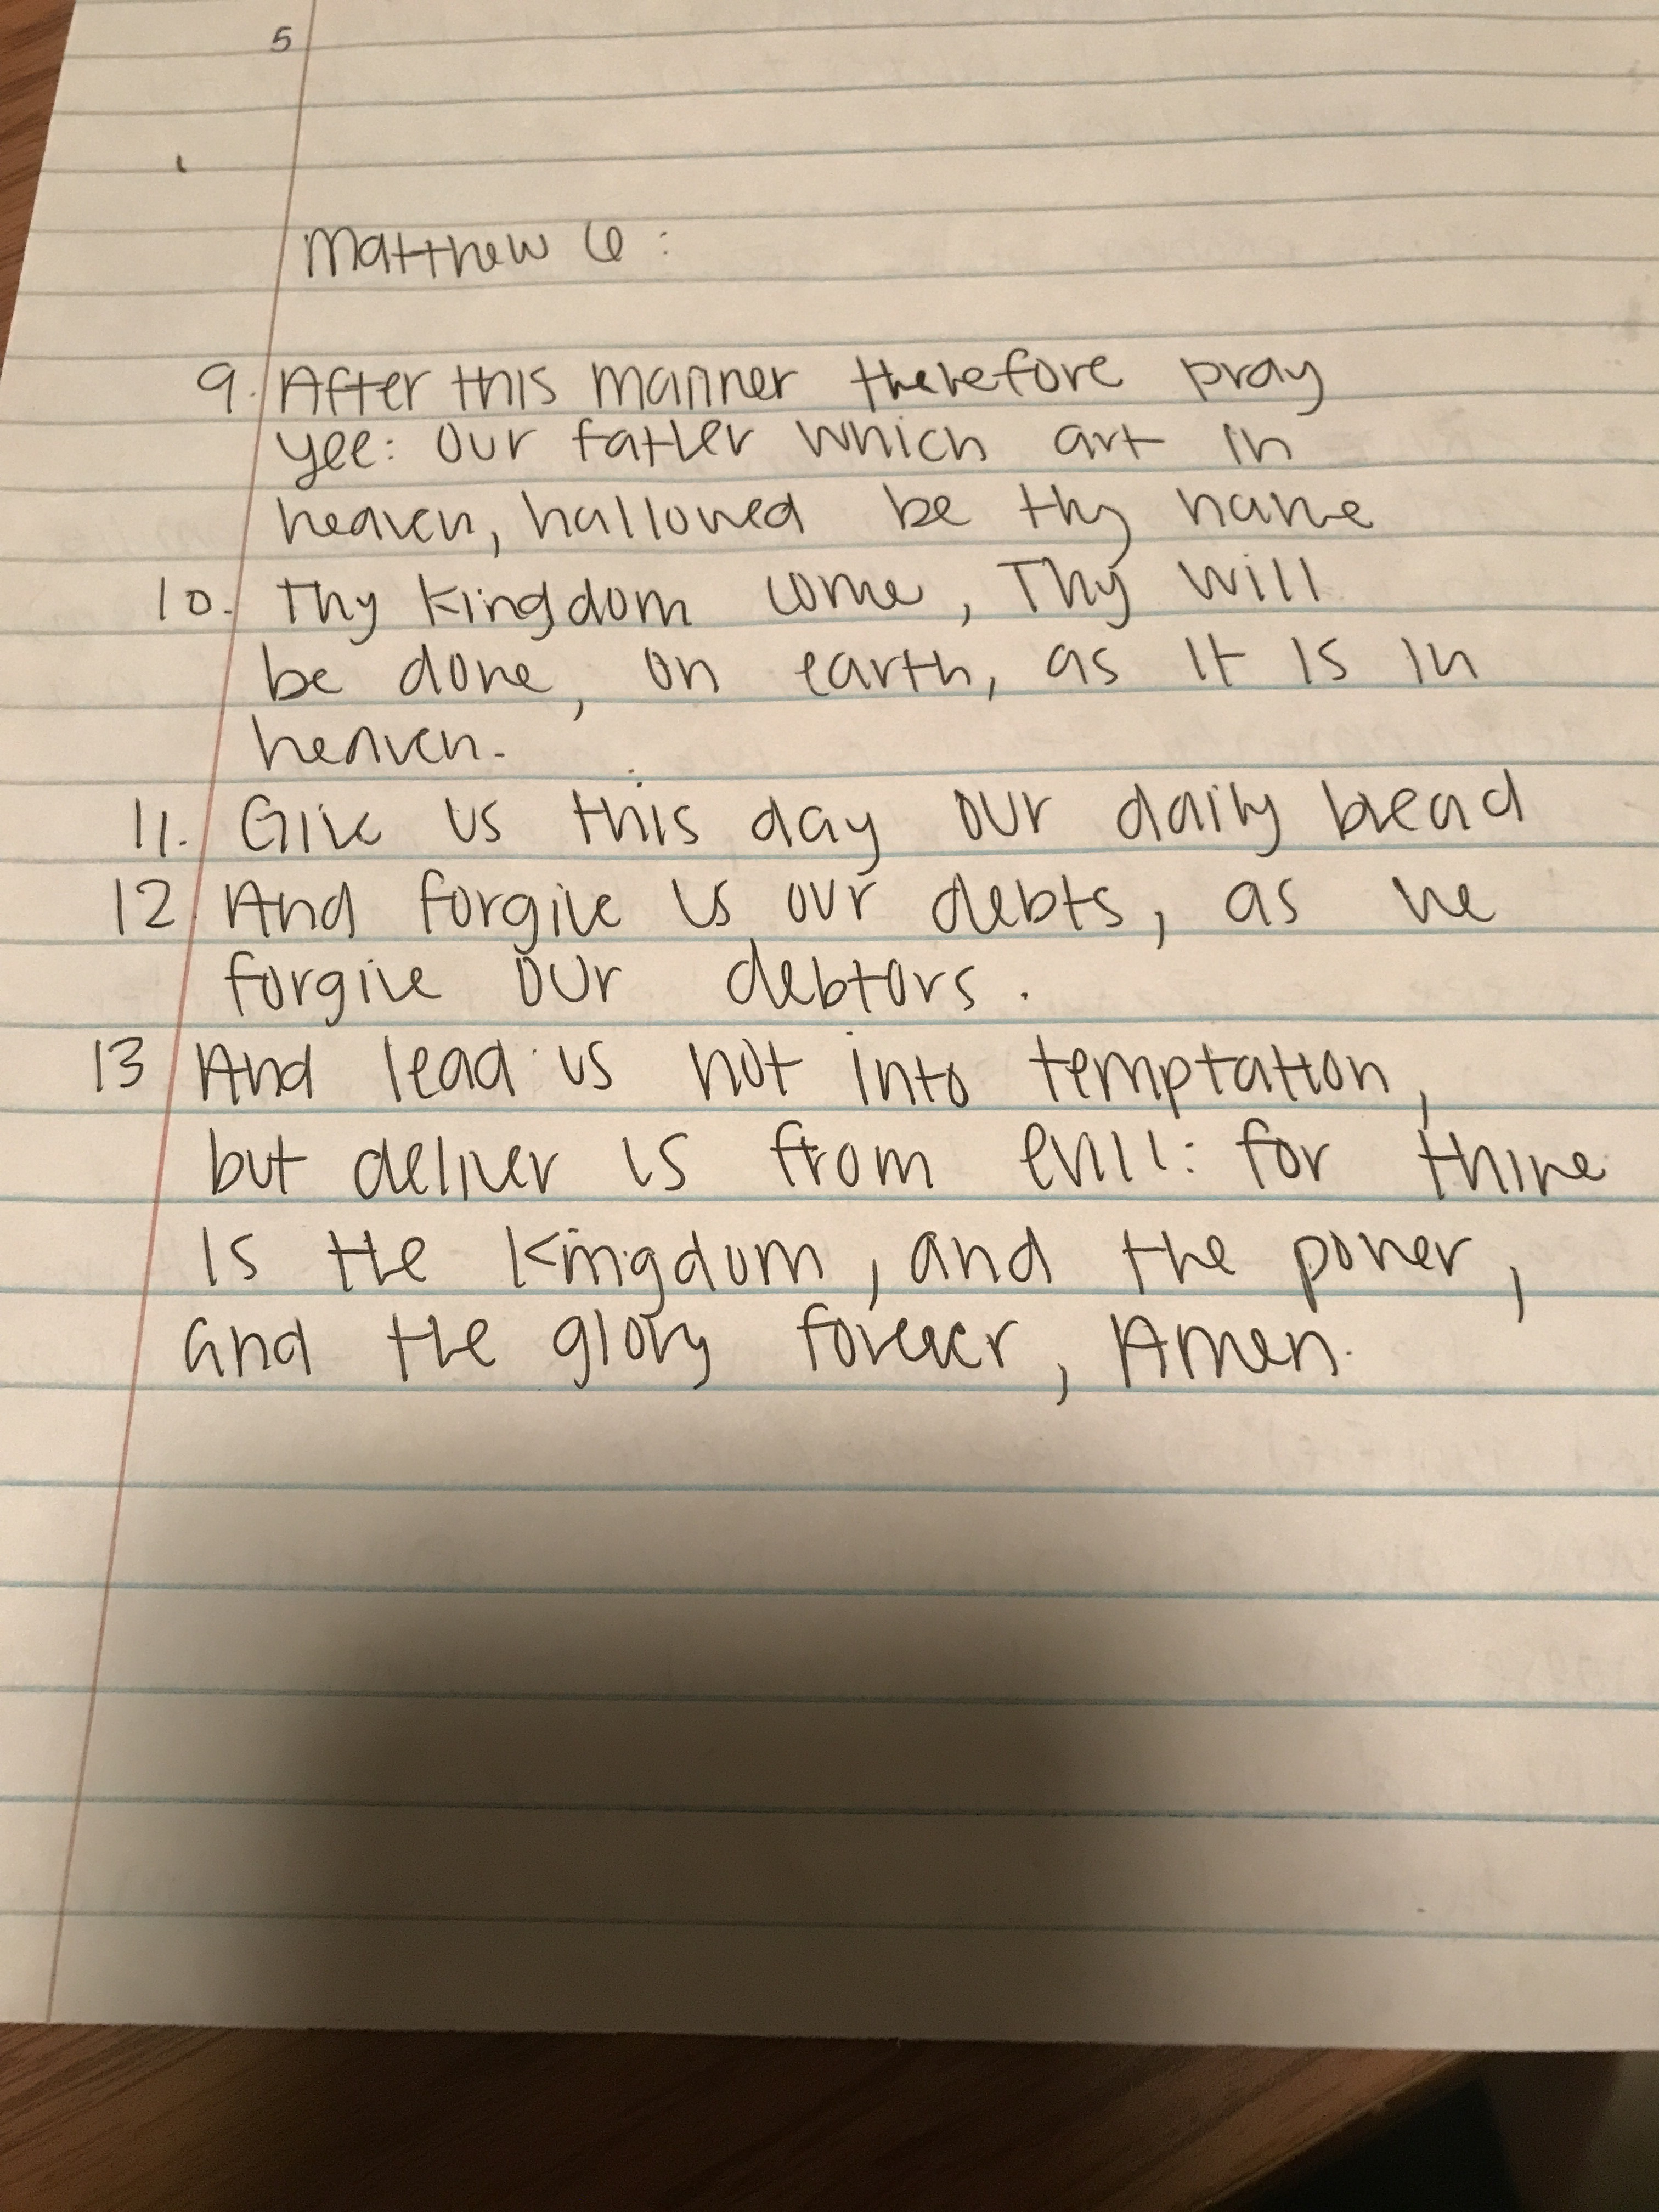 5
Matthew 6:
9. After this manner therefore pray
yee: our father which art in
heaven, hallowed be thy name
10. Thy kingdom come, Thy will
be done, on earth, as it is in
heaven.
11. Give us this day our daily bread
12. And forgive us our debts, as we
forgive our debtors.
13 And lead us not into temptation,
but deliver us from evill: for thine
is the kingdom, and the power,
and the glory forever, Amen.